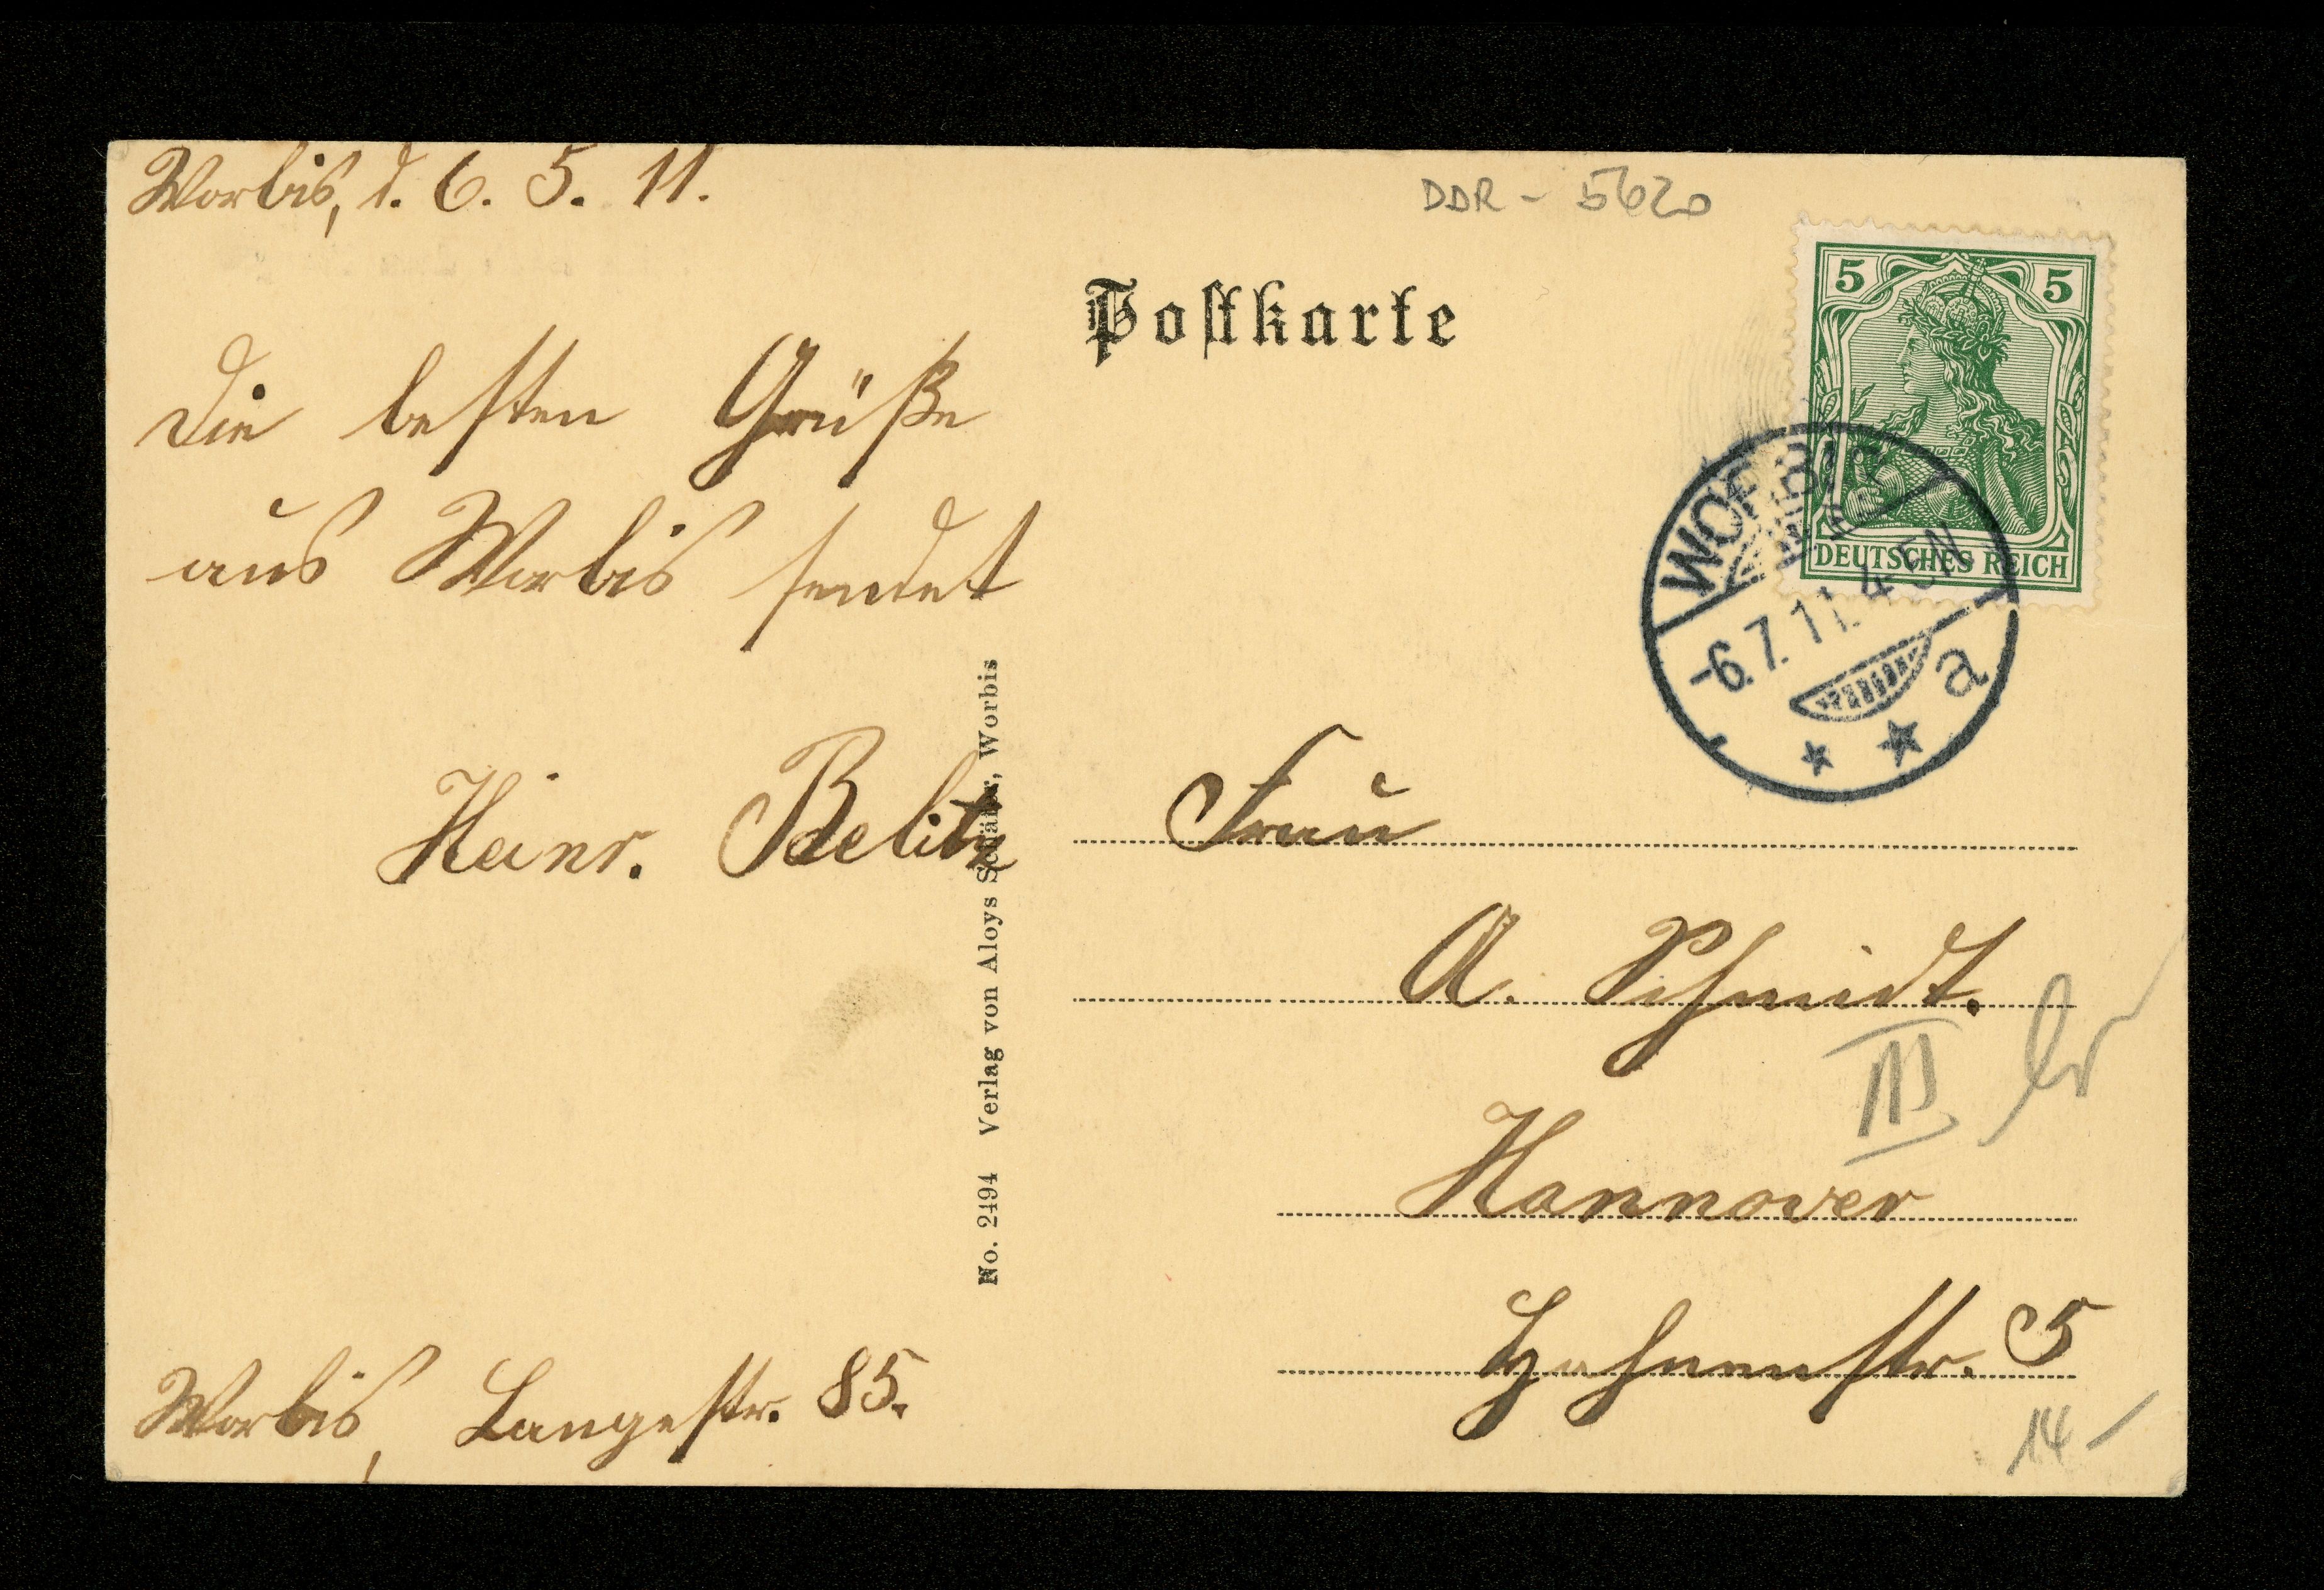 Worbis, d. 6. 5. 11.
DDR - 5620
Postkarte
5 5
DEUTSCHES REICH
WORBIS
-6.7.11. 4-5N
a
Die besten Grüße
aus Worbis sendet
Heinr. Belitz
No. 2494 Verlag von Aloys Schäfer, Worbis
Frau
A. Schmidt.
III
Hannover
Hahnenstr. 5
14-
Worbis, Langestr. 85.